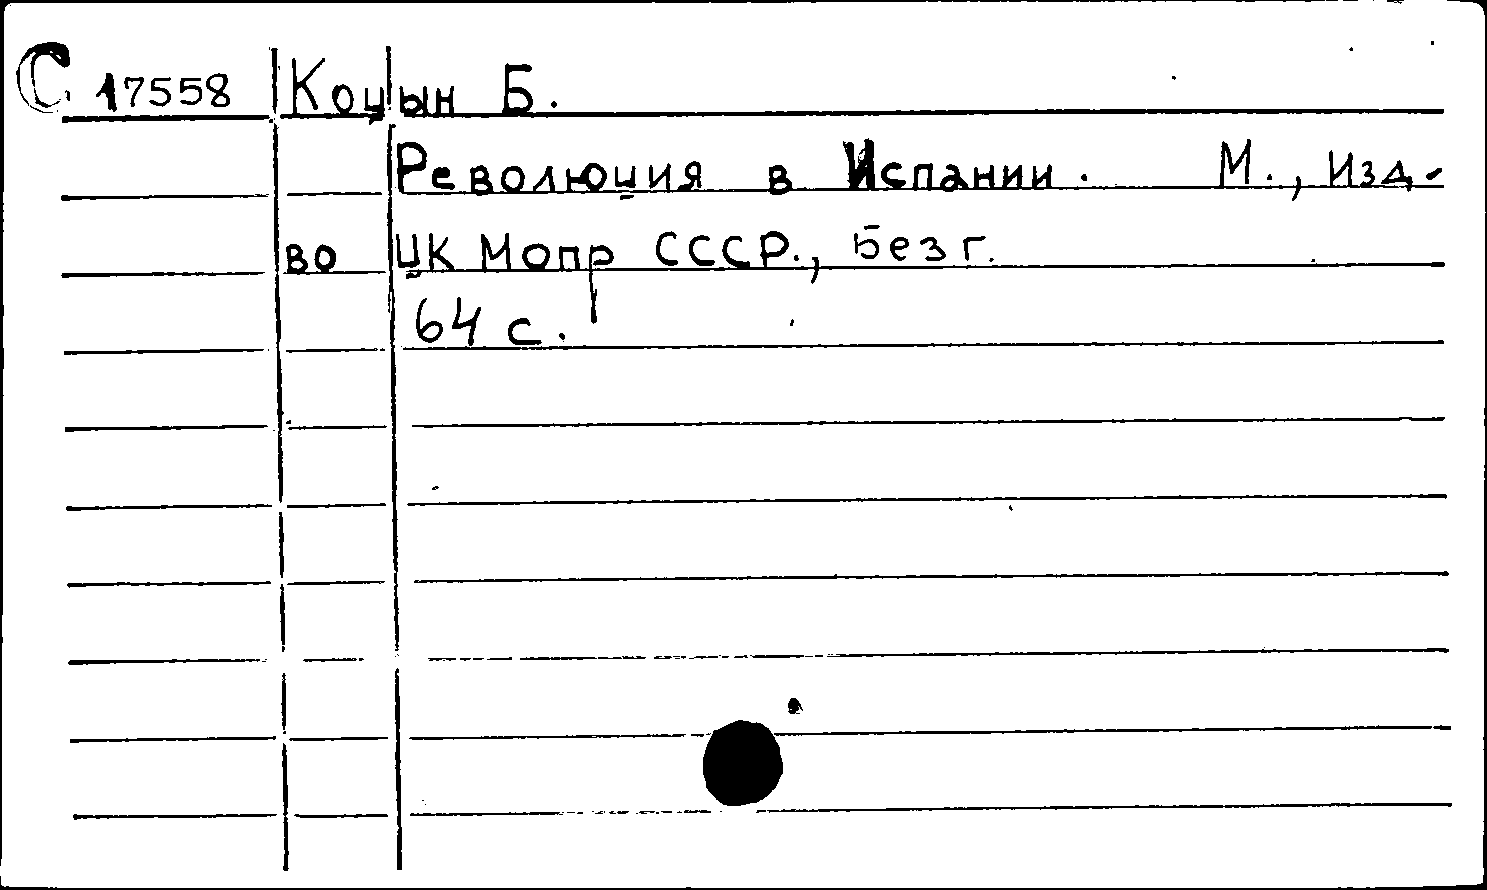 С 17558 Коцын Б.
Революция в Испании. М., Изд-
во ЦК Мопр СССР., Без г.
64 с.